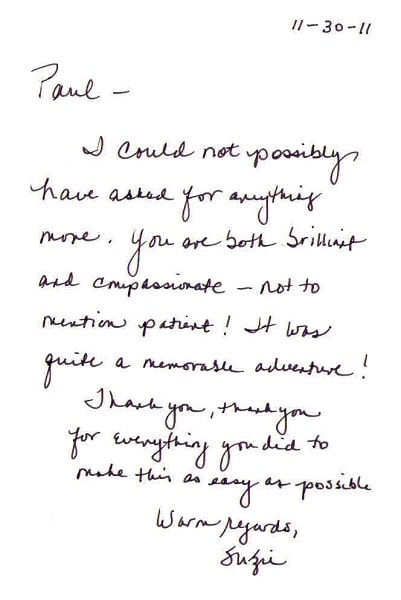 11-30-11
Paul -
I could not possibly
have asked for anything
more. You are both brilliant
and compassionate - not to
mention patient! It was
quite a memorable adventure!
Thank you, thank you
for everything you did to
make this as easy as possible
Warm regards,
Suzie